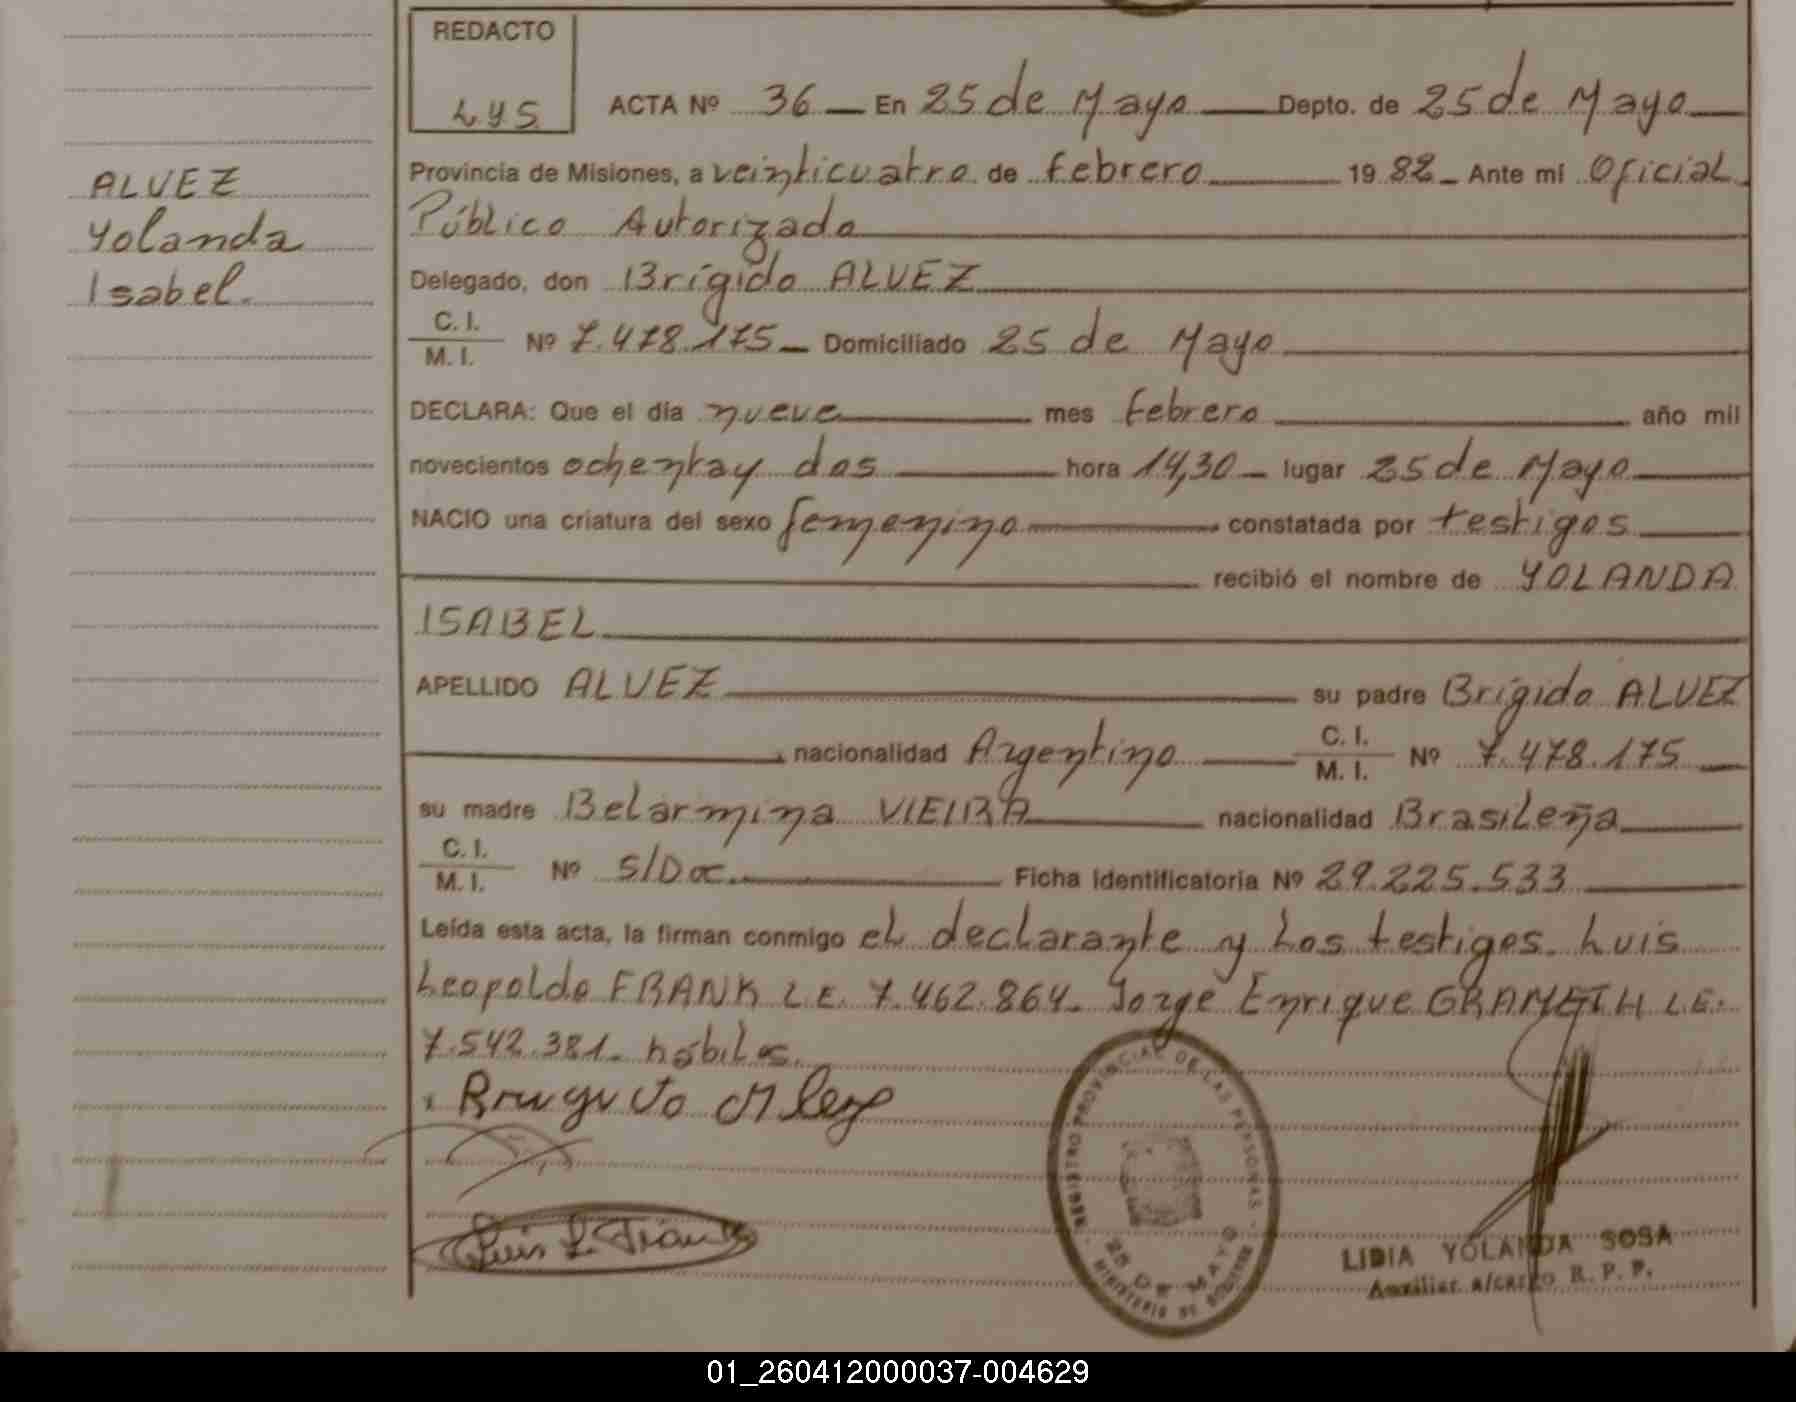 REDACTO
L.Y.S.
ACTA Nº 36 En 25 de Mayo Depto. de 25 de Mayo
ALVEZ
Yolanda
Isabel.
Provincia de Misiones, a veinticuatro de febrero 1982 Ante mi Oficial
Público Autorizado
Delegado, don Brígido ALVEZ
C. I.
M. I. Nº 7.478.175 Domiciliado 25 de Mayo
DECLARA: Que el día nueve mes febrero año mil
novecientos ochentay dos hora 14,30 lugar 25 de Mayo
NACIO una criatura del sexo femenino constatada por testigos
recibió el nombre de YOLANDA
ISABEL
APELLIDO ALVEZ su padre Brígido ALVEZ
nacionalidad Argentino C. I. M. I. Nº 7.478.175
su madre Belarmina VIEIRA nacionalidad Brasileña
C. I.
M. I. Nº S/Doc. Ficha Identificatoria Nº 29.225.533
Leída esta acta, la firman conmigo el declarante y los testigos. Luis
Leopoldo FRANK L.E. 7.462.864. Jorge Enrique L.E.
7.542.381. hábiles.
Luis L. Frank
REGISTRO PROVINCIAL DE LAS PERSONAS
25 DE MAYO
MINISTERIO DE GOBIERNO
LIDIA YOLANDA SOSA
Auxiliar a/cargo R. P. P.
01_260412000037-004629